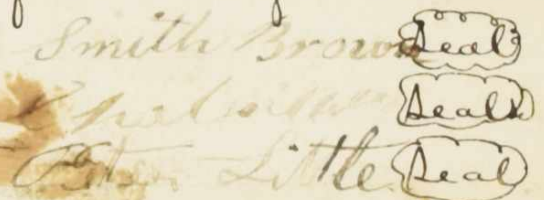 Smith Brown Seal
Seal
Peter Little Seal